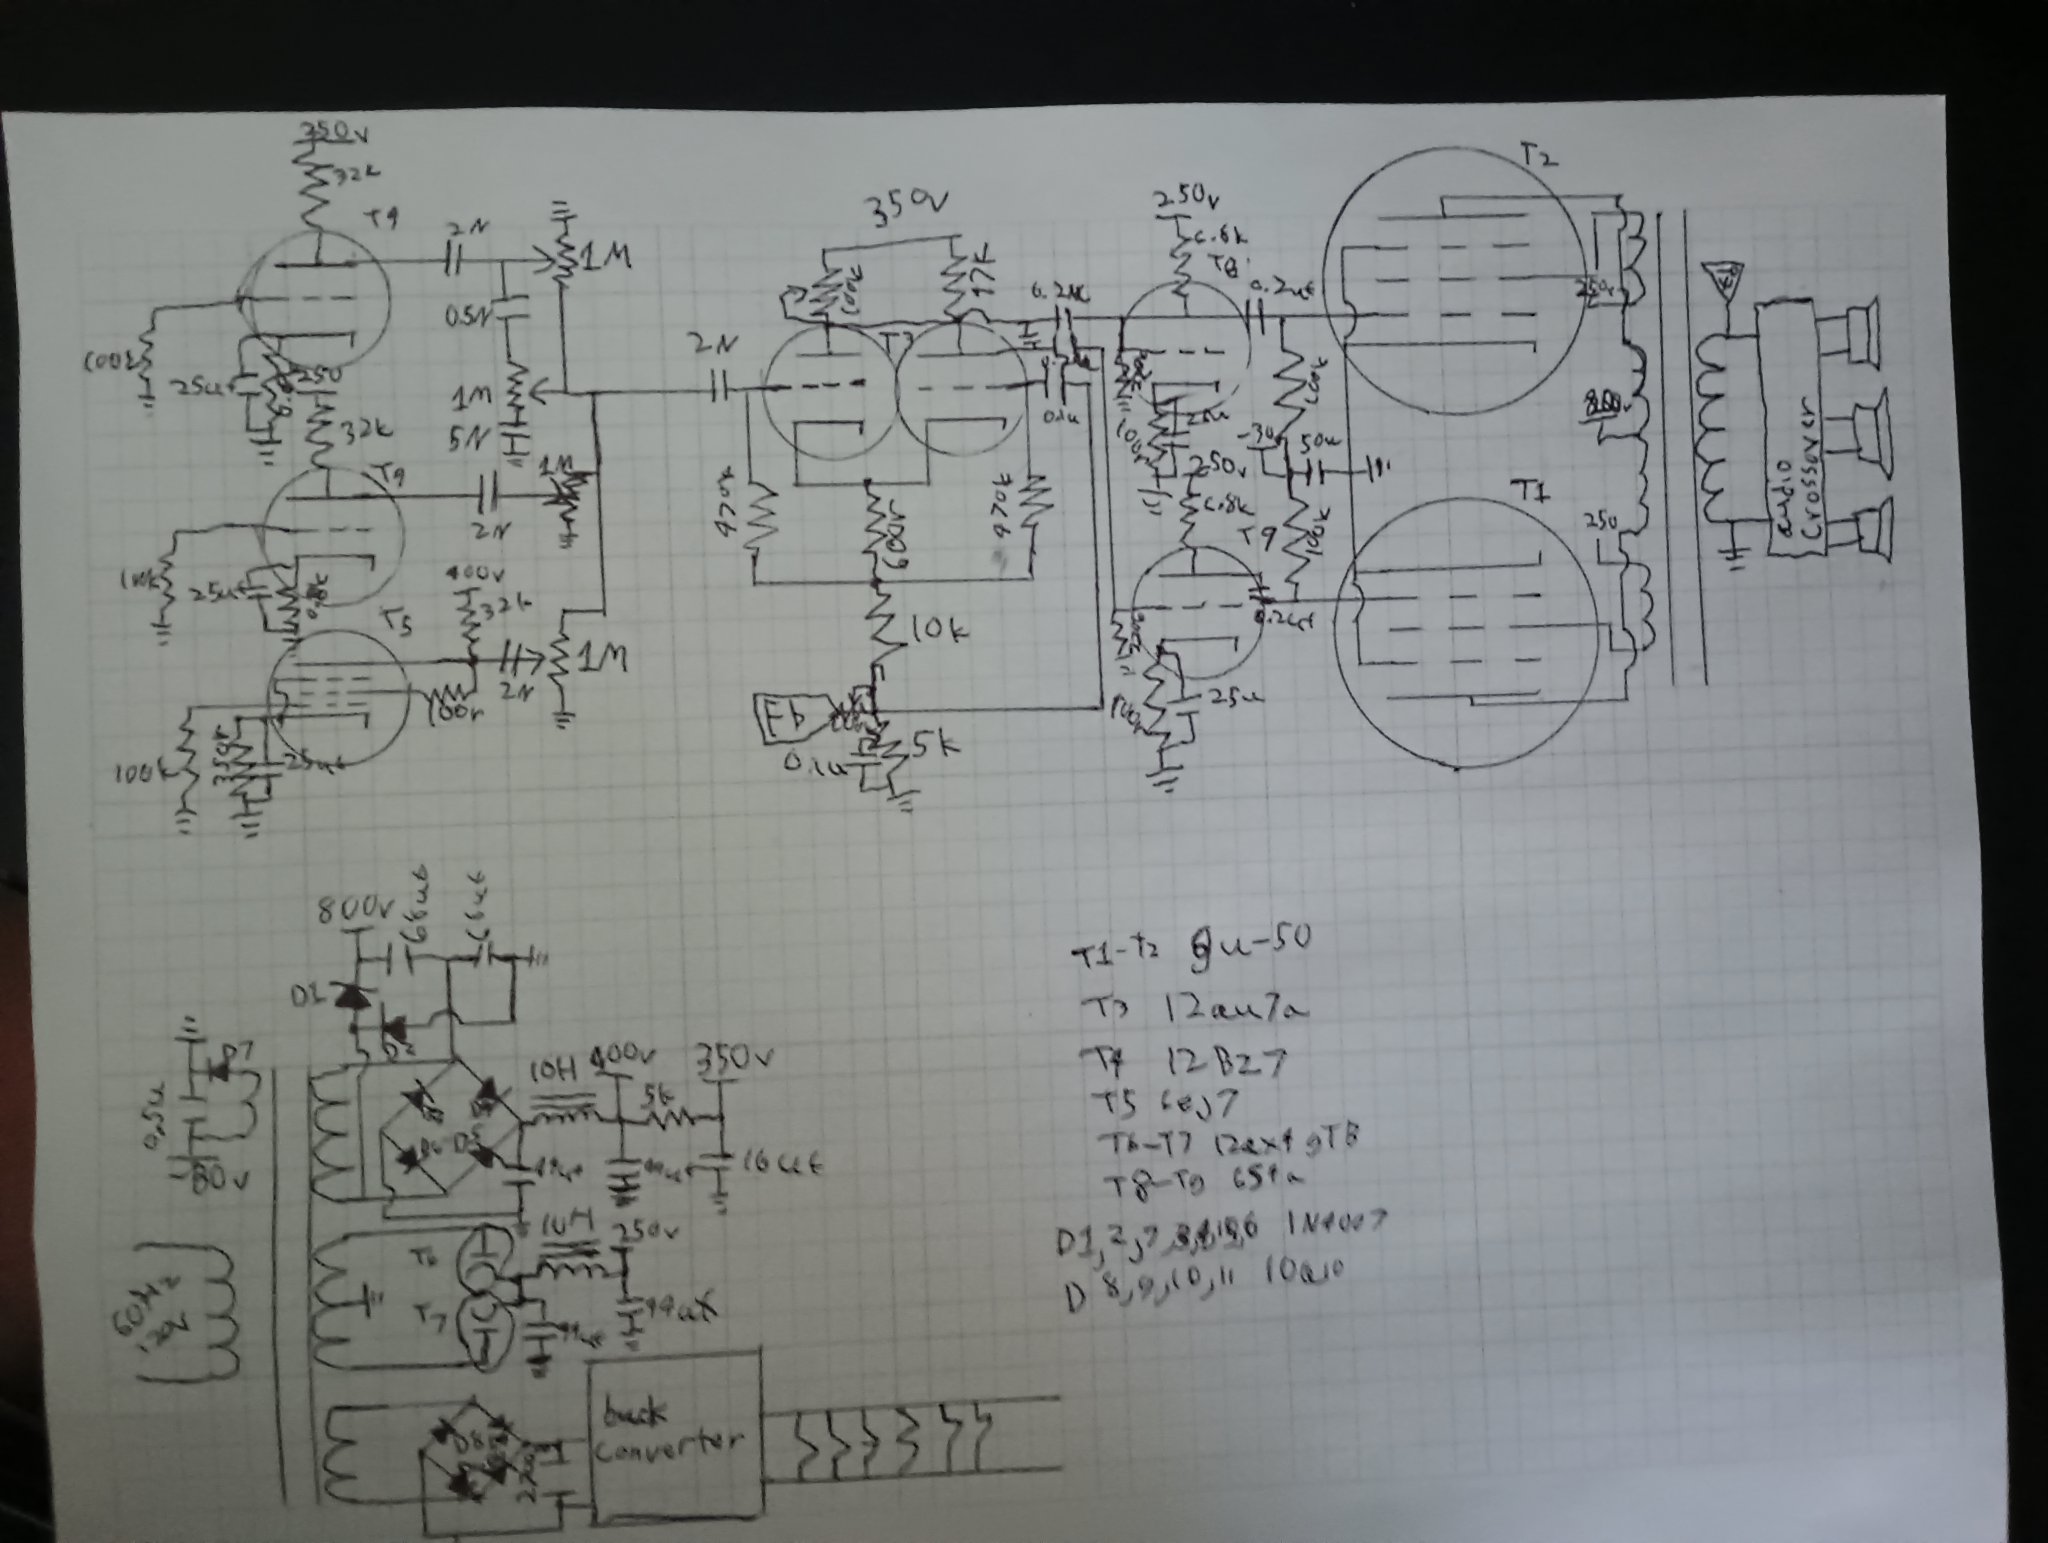 250v
32k
T4
2N
1M
0.5N
100k
25u
250
32k
1M
5N
T4
2N
1M
25u
400v
32k
T5
2N
1M
100r
100k
350r
25uf
350v
100k
47k
2N
T3
470k
600r
470k
10k
Fb
5k
0.1u
0.1u
250v
6.8k
T8
25u
100k
-30
50u
250v
6.8k
T9
100k
25u
T2
250v
800v
T1
250
Fb
audio
Crossover
800v
66uf
66uf
D1
D2
D7
0.5u
10H
400v
5k
350v
16uf
60Hz
T6
T7
10H
250v
buck
converter
T1-T2 gu-50
T3 12au7a
T4 12BZ7
T5 6ej7
T6-T7 12ax4gTB
T8-T9 6S4a
D1,2,7,3,4,5,6 1N4007
D 8,9,10,11 10a10